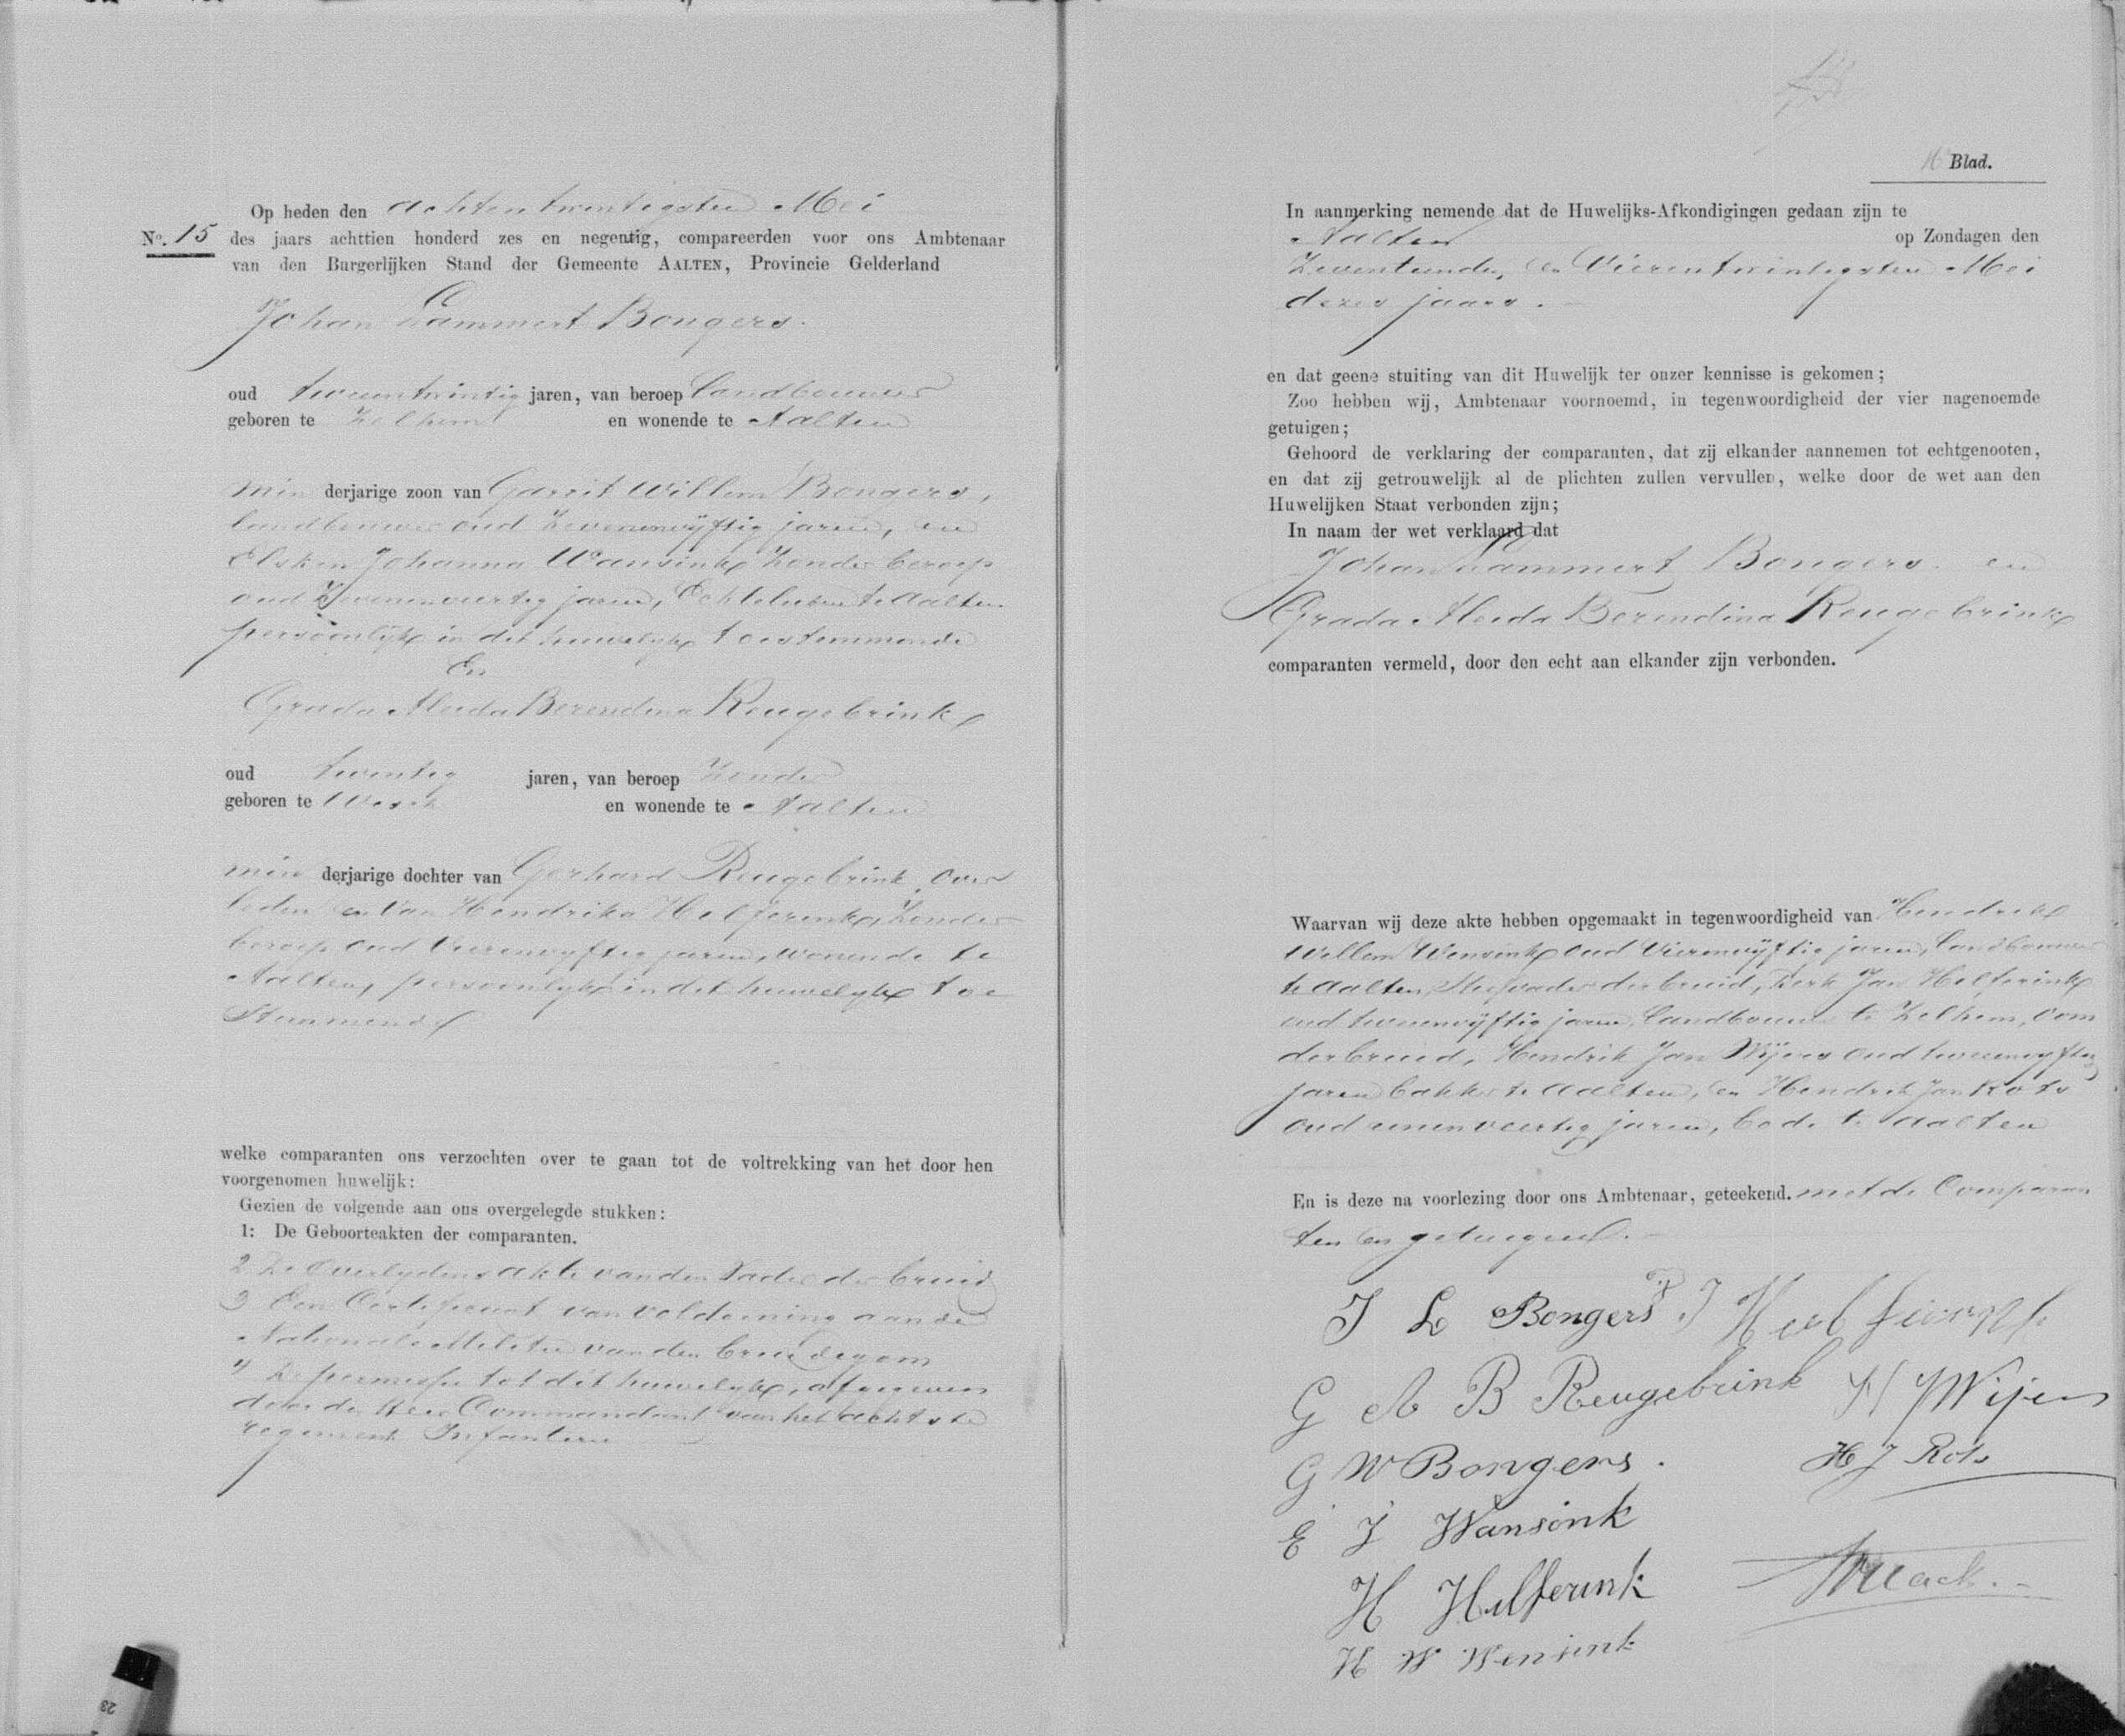 Op heden den achtentwintigsten Mei
No. 15 des jaars achttien honderd zes en negentig, compareerden voor ons Ambtenaar
van den Burgerlijken Stand der Gemeente AALTEN, Provincie Gelderland
Johan Lammert Bongers.
oud tweeentwintig jaren, van beroep Landbouwer
geboren te Zelhem en wonende te Aalten
min derjarige zoon van Garrit Willem Bongers,
landbouwer oud zevenenvijftig jaren, en
Elsken Johanna Wansink, zonder beroep
oud zevenenveertig jaren, Echtelieden te Aalten
persoonlijk in dit huwelijk toestemmende
En
Grada Aleida Berendina Reugebrink
oud twintig jaren, van beroep zonder
geboren te Wisch en wonende te Aalten
min derjarige dochter van Gerhard Reugebrink, over
leden en van Hendrika Helferink, zonder
beroep oud vierenvijftig jaren, wonende te
Aalten, persoonlijk in dit huwelijk toe
stemmende
welke comparanten ons verzochten over te gaan tot de voltrekking van het door hen
voorgenomen huwelijk:
Gezien de volgende aan ons overgelegde stukken:
1: De Geboorteakten der comparanten.
2 De Overlydens akte van den Vader der bruid
3 Een Certificaat van voldoening aan de
Nationale Militie van den bruidegom
4 De permissie tot dit huwelijk, afgegeven
door den Heer Commandant van het achtste
regement Infanterie
16e Blad.
In aanmerking nemende dat de Huwelijks-Afkondigingen gedaan zijn te
Aalten op Zondagen den
Zeventienden, en Vierentwintigsten Mei
dezes jaars.
en dat geene stuiting van dit Huwelijk ter onzer kennisse is gekomen;
Zoo hebben wij, Ambtenaar voornoemd, in tegenwoordigheid der vier nagenoemde
getuigen;
Gehoord de verklaring der comparanten, dat zij elkander aannemen tot echtgenooten,
en dat zij getrouwelijk al de plichten zullen vervullen, welke door de wet aan den
Huwelijken Staat verbonden zijn;
In naam der wet verklaard dat
Johan Lammert Bongers en
Grada Aleida Berendina Reugebrink
comparanten vermeld, door den echt aan elkander zijn verbonden.
Waarvan wij deze akte hebben opgemaakt in tegenwoordigheid van Hendrik
Willem Wensink oud vierenvijftig jaren, landbouwer
te Aalten, Stiefvader der bruid, Derk Jan Helferink
oud tweeenvijftig jaren, landbouwer te Zelhem, oom
der bruid, Hendrik Jan Wijers oud tweeenvijftig
jaren bakker te Aalten, en Hendrik Jan Rots
oud eenenveertig jaren, bode te Aalten
En is deze na voorlezing door ons Ambtenaar, geteekend. met de Comparan
ten en getuigen.
J L Bongers D J Helferink
G A B Reugebrink H J Wijers
G W Bongers. H J Rots
E J Wansink
H Hilferink
H W Wensink